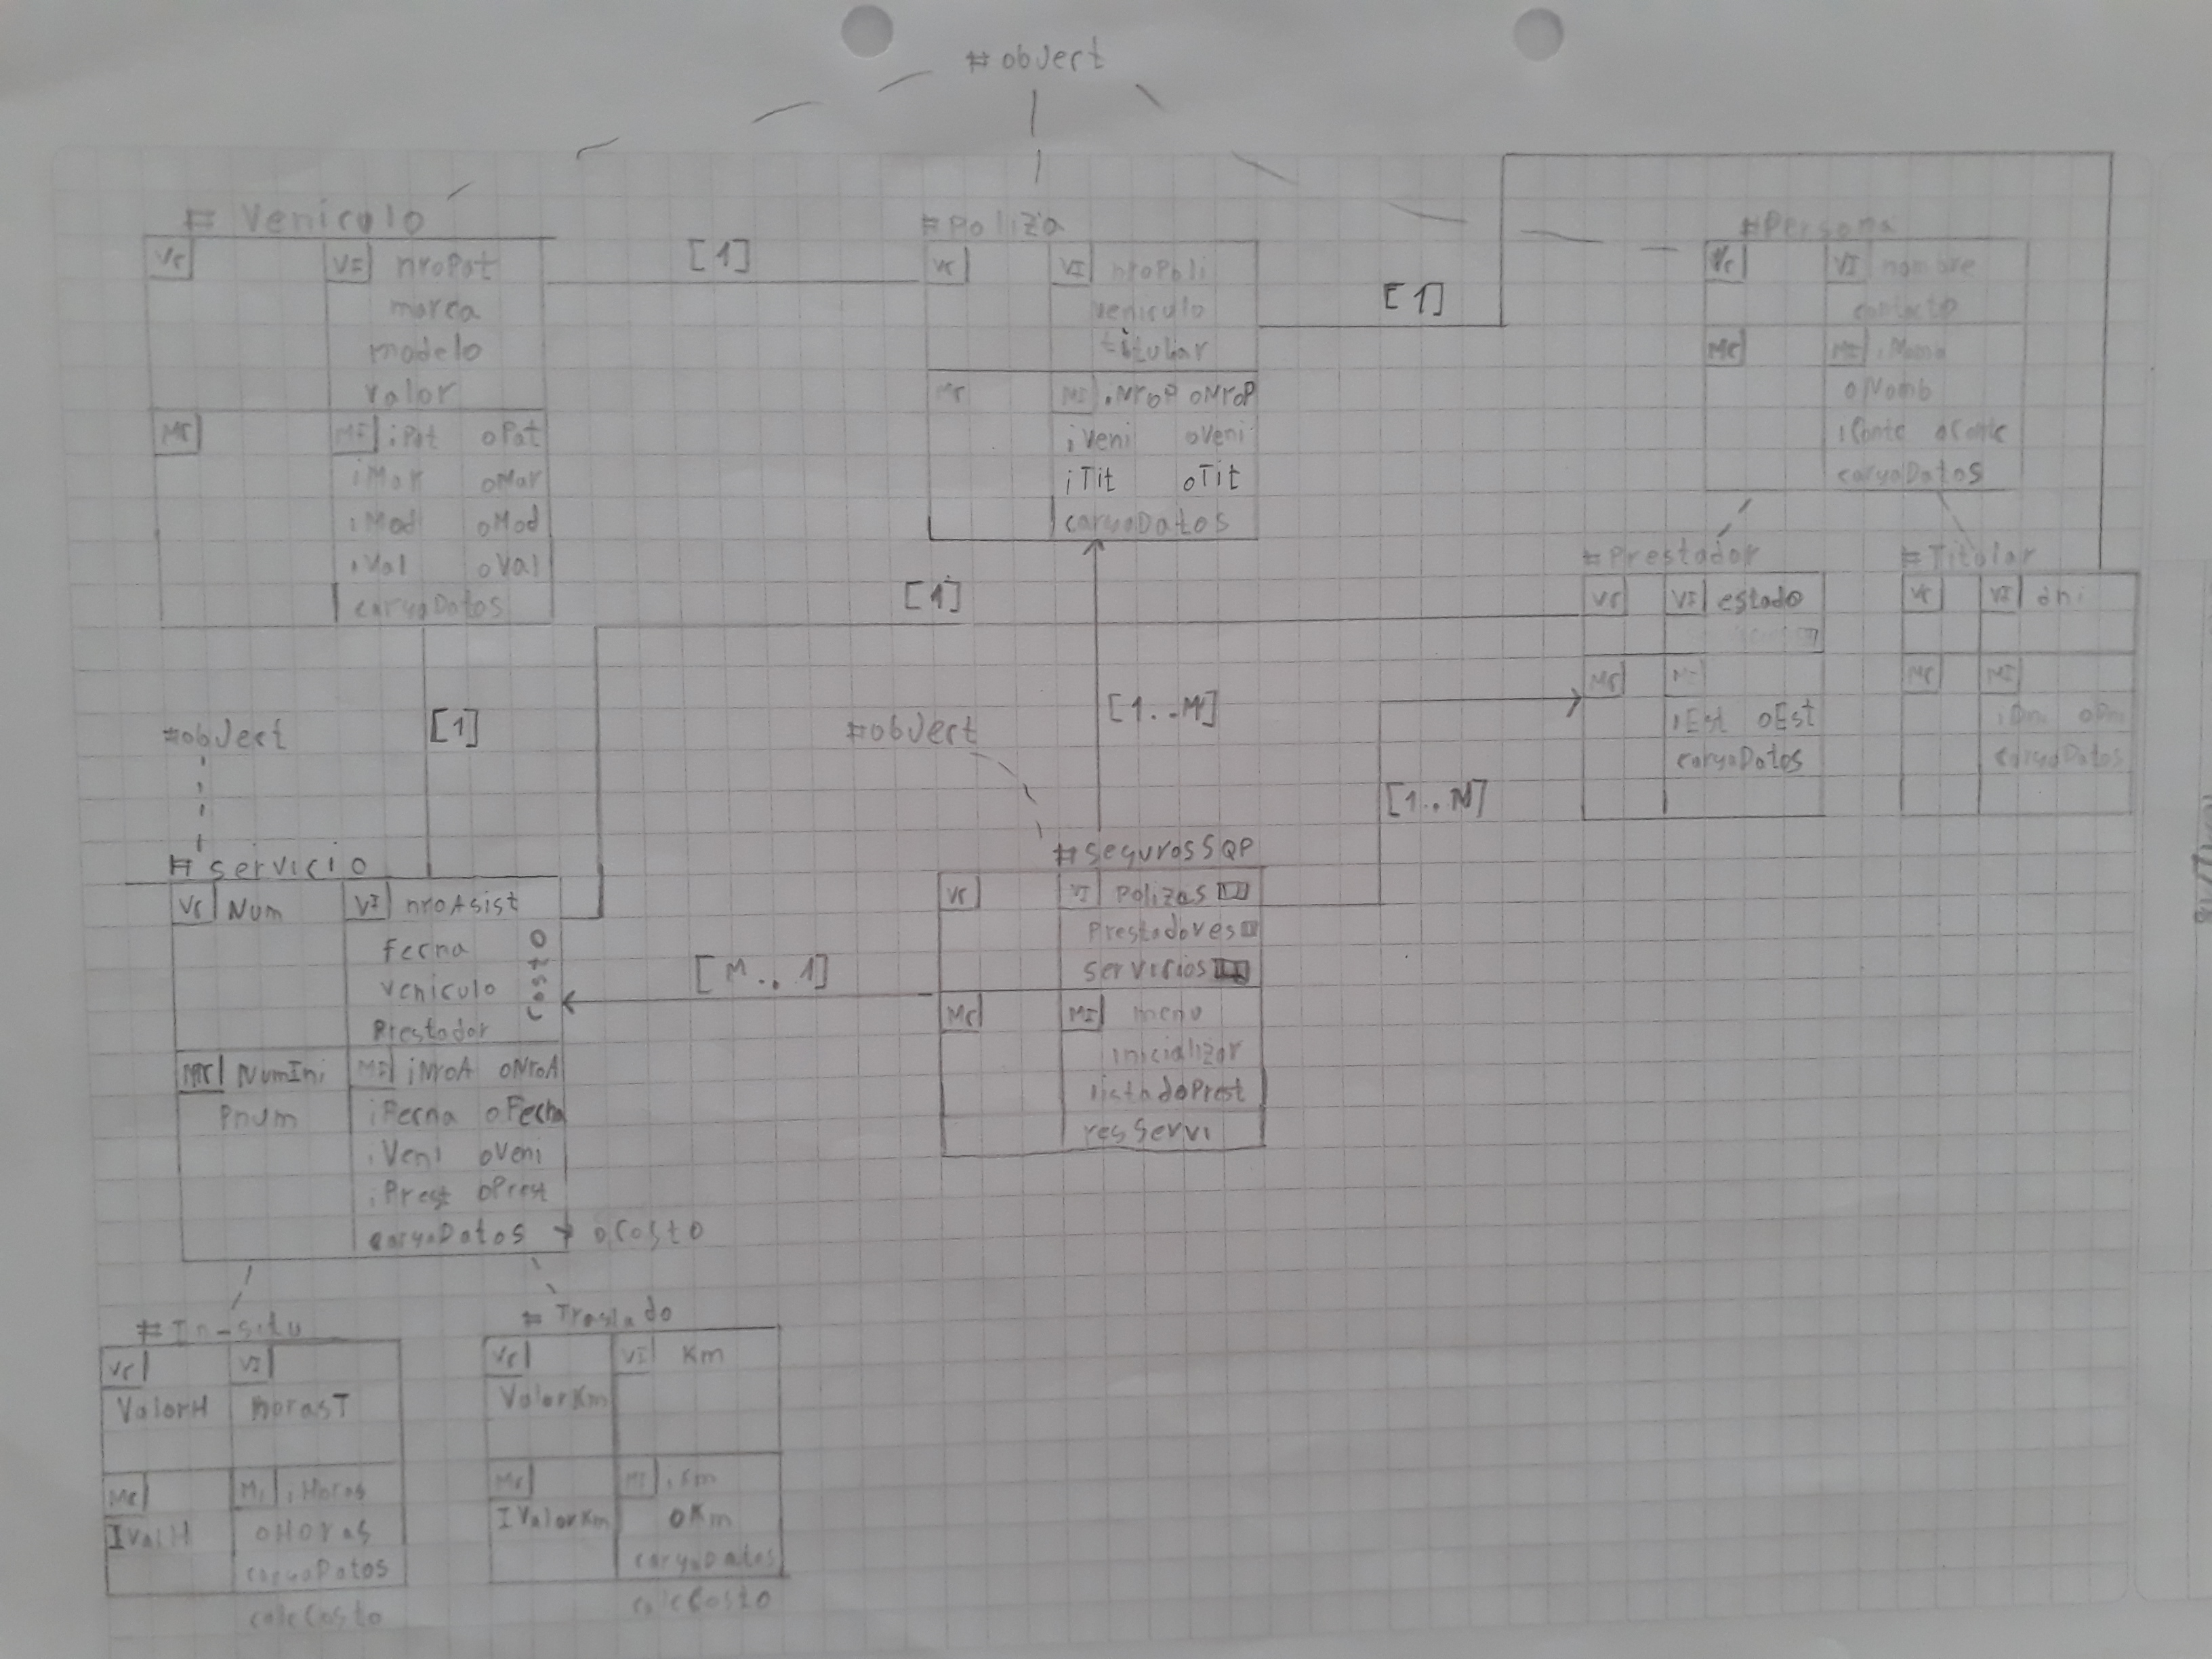 #obJect
# Veniculo
Vc VI nroPat
marca
modelo
valor
Mc MI iPat oPat
iMar oMar
iMod oMod
iVal oVal
cargaDatos
[1]
#Poliza
Vc VI nroPoli
veniculo
titular
Mc MI iNroP oNroP
iVeni oVeni
iTit oTit
cargaDatos
[1]
#Persona
Vc VI nombre
contacto
Mc MI iNomb
oNomb
iContc oContc
cargaDatos
#Prestador
Vc VI estado
Mc MI
iEst oEst
cargaDatos
#Titular
Vc VI dni
Mc MI
iDni oDni
cargaDatos
[1]
[1]
#obJect
#obJect
[1..M]
[1..N]
# servicio
Vc Num VI nroAsist
fecna
veniculo
Prestador
Costo
Mc NumIni MI iNroA oNroA
Pnum iFecna oFecha
iVeni oVeni
iPrest oPrest
cargaDatos → oCosto
[M..1]
#SegurosSQP
Vc VI Polizas
Prestadores
servicios
Mc MI menu
inicializar
listadoPrest
resServi
# In-situ
Vc VI
ValorH horasT
Mc MI iHoras
IValH oHoras
cargaDatos
calcCosto
# Traslado
Vc VI Km
ValorKm
Mc MI iKm
IValorKm oKm
cargaDatos
calcCosto